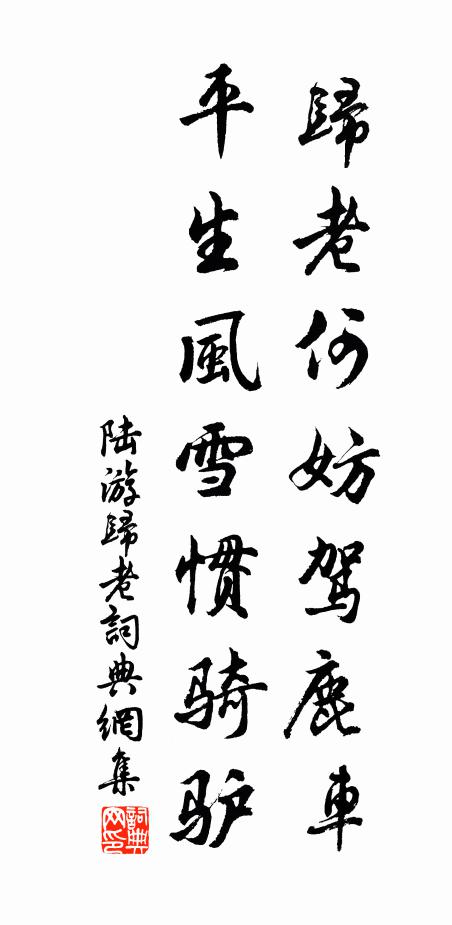 歸老何妨駕鹿車
平生風雪慣骑驴
陆游歸老詞典網集
詞典网印